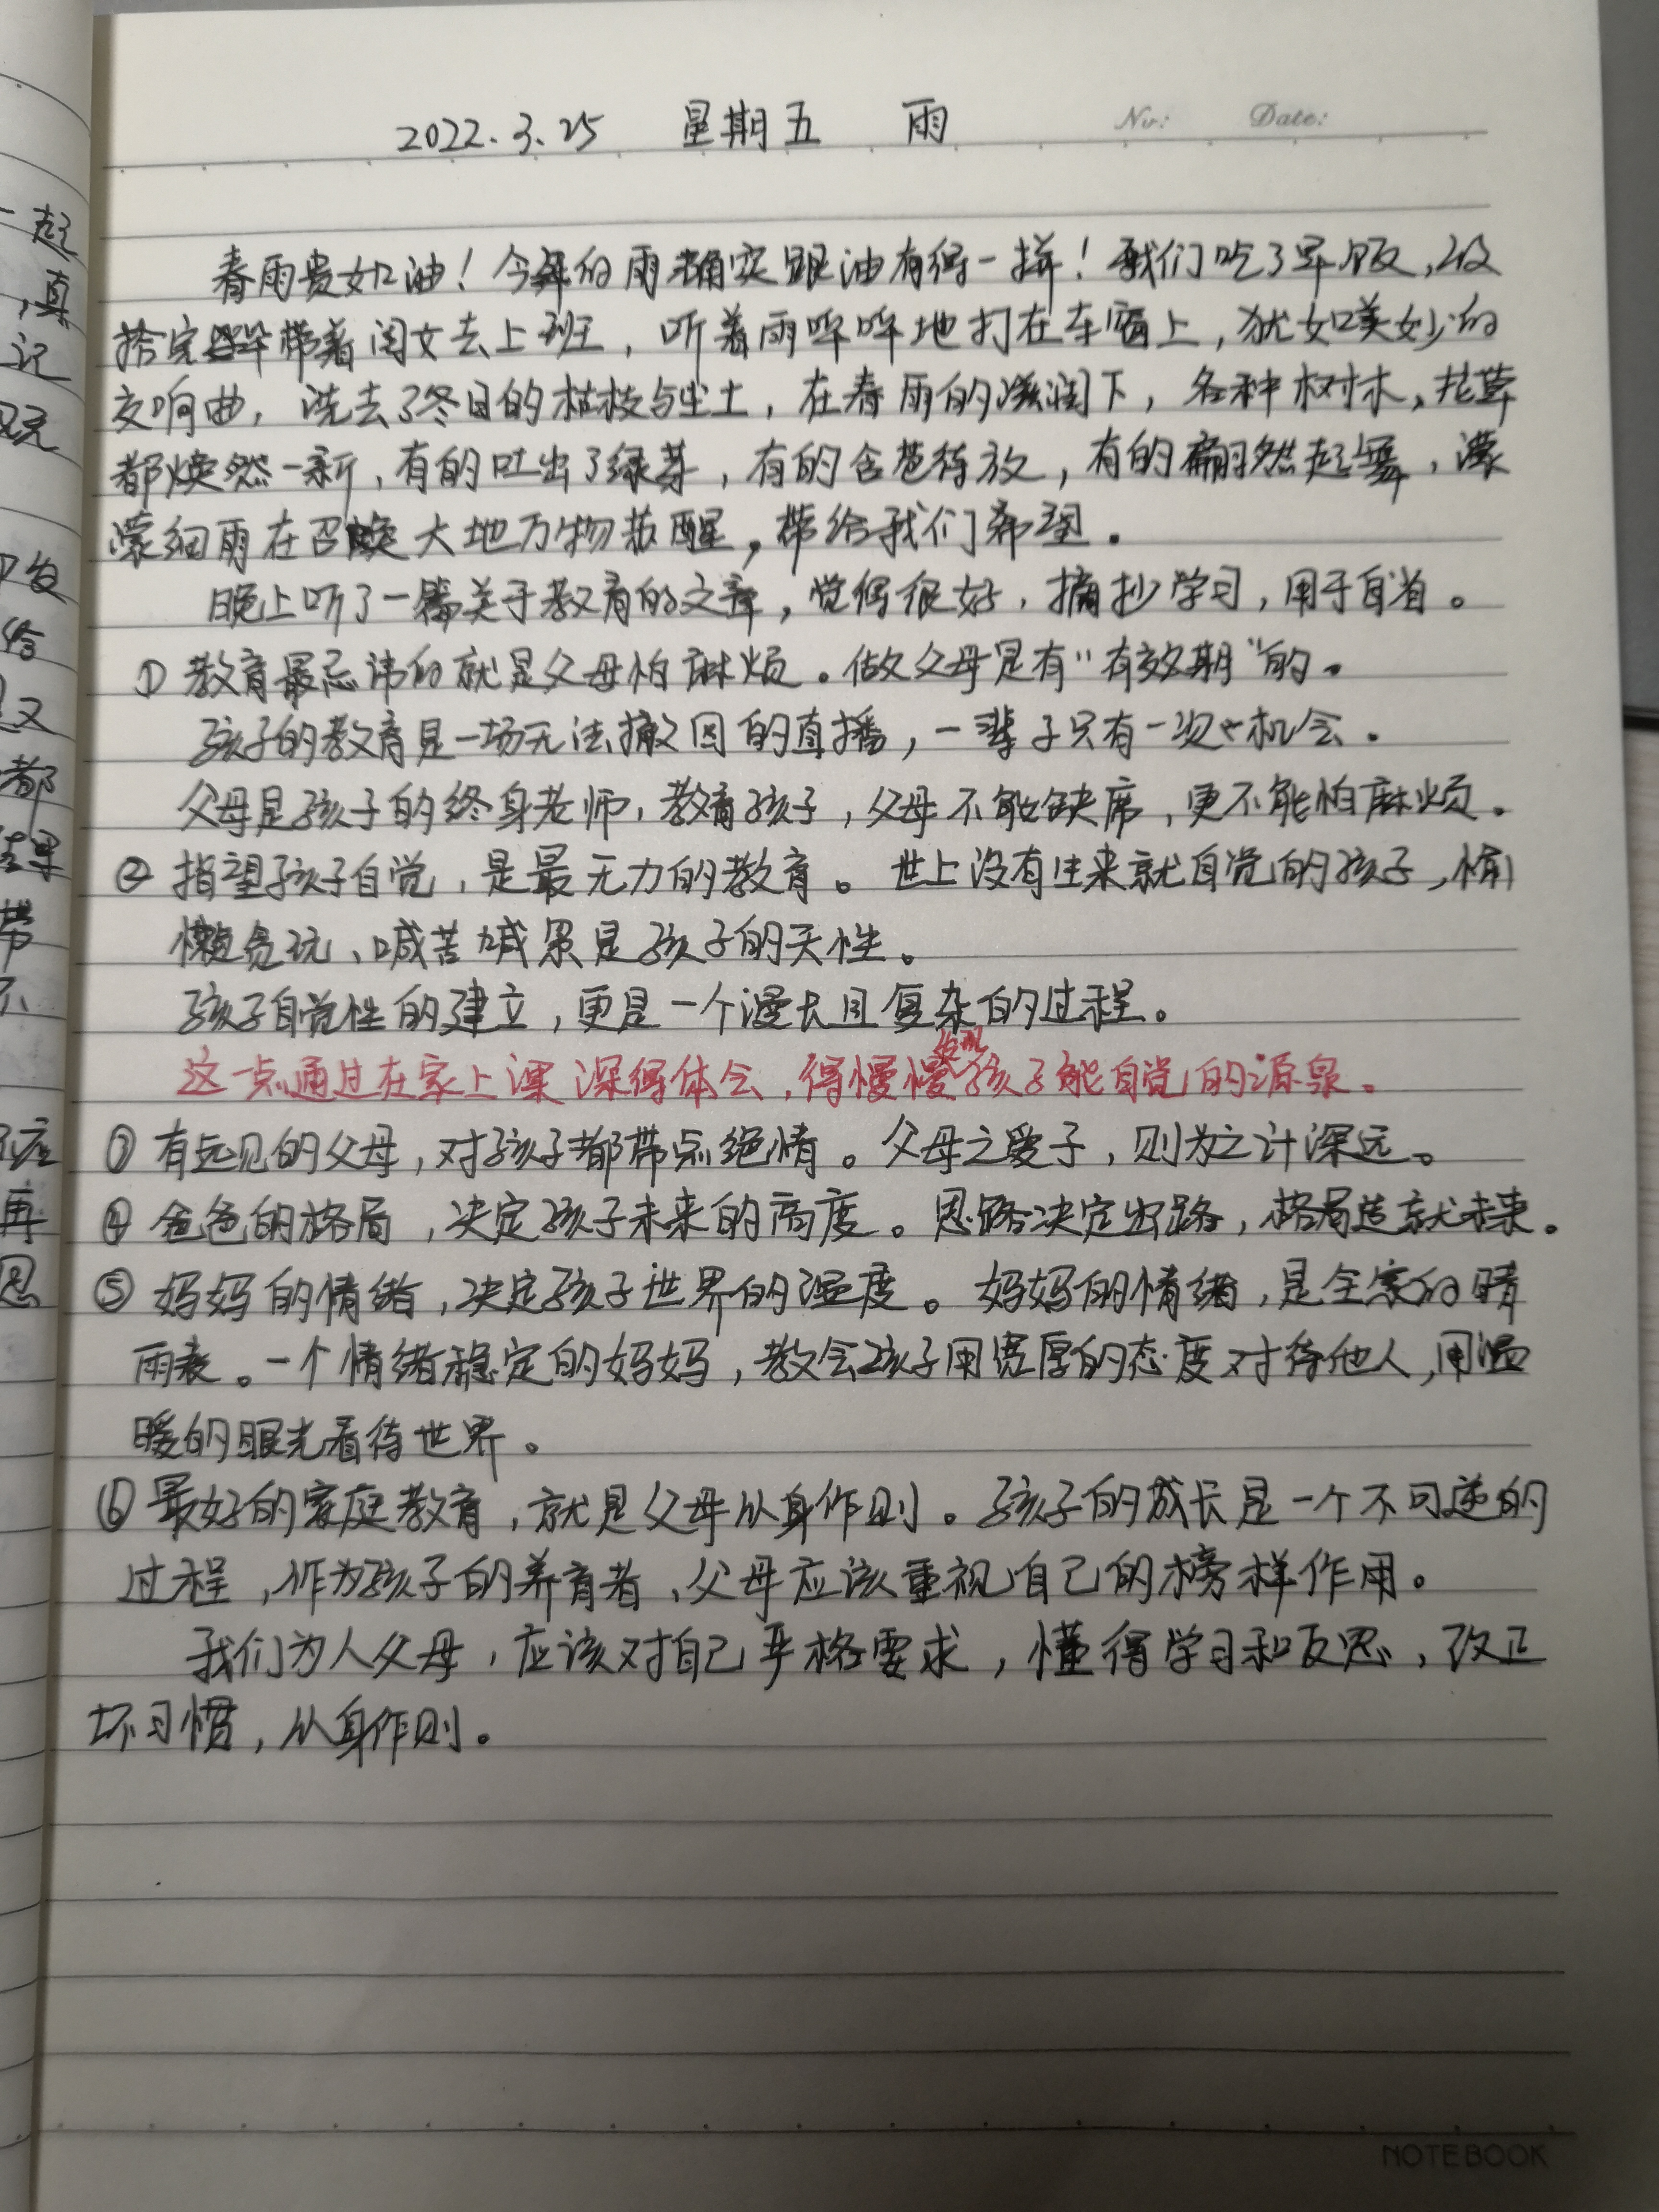 2022.3.25 星期五 雨
No: Date:
春雨贵如油！今年的雨确实跟油有得一拼！我们吃了早饭，收
拾完毕带着闺女去上班，听着雨哗哗地打在车窗上，犹如美妙的
交响曲，洗去了冬日的枯枝与尘土，在春雨的滋润下，各种树木，花草
都焕然一新，有的吐出了绿芽，有的含苞待放，有的翩然起舞，濛
濛细雨在召唤大地万物苏醒，带给我们希望。
晚上听了一篇关于教育的文章，觉得很好，摘抄学习，用于自省。
① 教育最忌讳的就是父母怕麻烦。做父母是有“有效期”的。
孩子的教育是一场无法撤回的直播，一辈子只有一次机会。
父母是孩子的终身老师，教育孩子，父母不能缺席，更不能怕麻烦。
② 指望孩子自觉，是最无力的教育。世上没有生来就自觉的孩子，偷
懒贪玩、喊苦喊累是孩子的天性。
孩子自觉性的建立，更是一个漫长且复杂的过程。
这一点通过在家上课深得体会，得慢慢发现孩子能自觉的源泉。
③ 有远见的父母，对孩子都带点绝情。父母之爱子，则为之计深远。
④ 爸爸的格局，决定孩子未来的高度。思路决定出路，格局造就未来。
⑤ 妈妈的情绪，决定孩子世界的温度。妈妈的情绪，是全家的晴
雨表。一个情绪稳定的妈妈，教会孩子用宽厚的态度对待他人，用温
暖的眼光看待世界。
⑥ 最好的家庭教育，就是父母以身作则。孩子的成长是一个不可逆的
过程，作为孩子的养育者，父母应该重视自己的榜样作用。
我们为人父母，应该对自己严格要求，懂得学习和反思，改正
坏习惯，以身作则。
NOTEBOOK